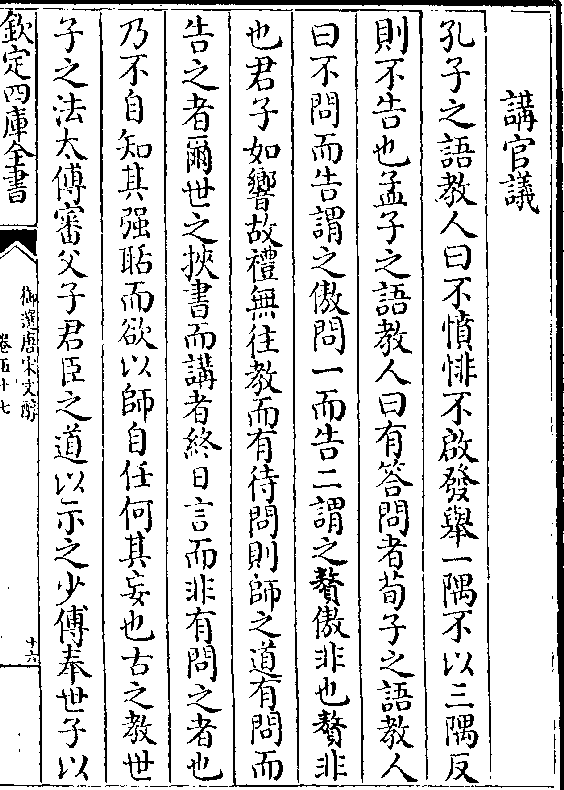 講官議
孔子之語教人曰不憤悱不啟發舉一隅不以三隅反
則不告也孟子之語教人曰有答問者荀子之語教人
曰不問而告謂之傲問一而告二謂之贅傲非也贅非
也君子如響故禮無往教而有待問則師之道有問而
告之者爾世之挾書而講者終日言而非有問之者也
乃不自知其强聒而欲以師自任何其妄也古之教世
子之法太傅審父子君臣之道以示之少傅奉世子以
欽定四庫全書
御選唐宋文醇
卷五十七
十六